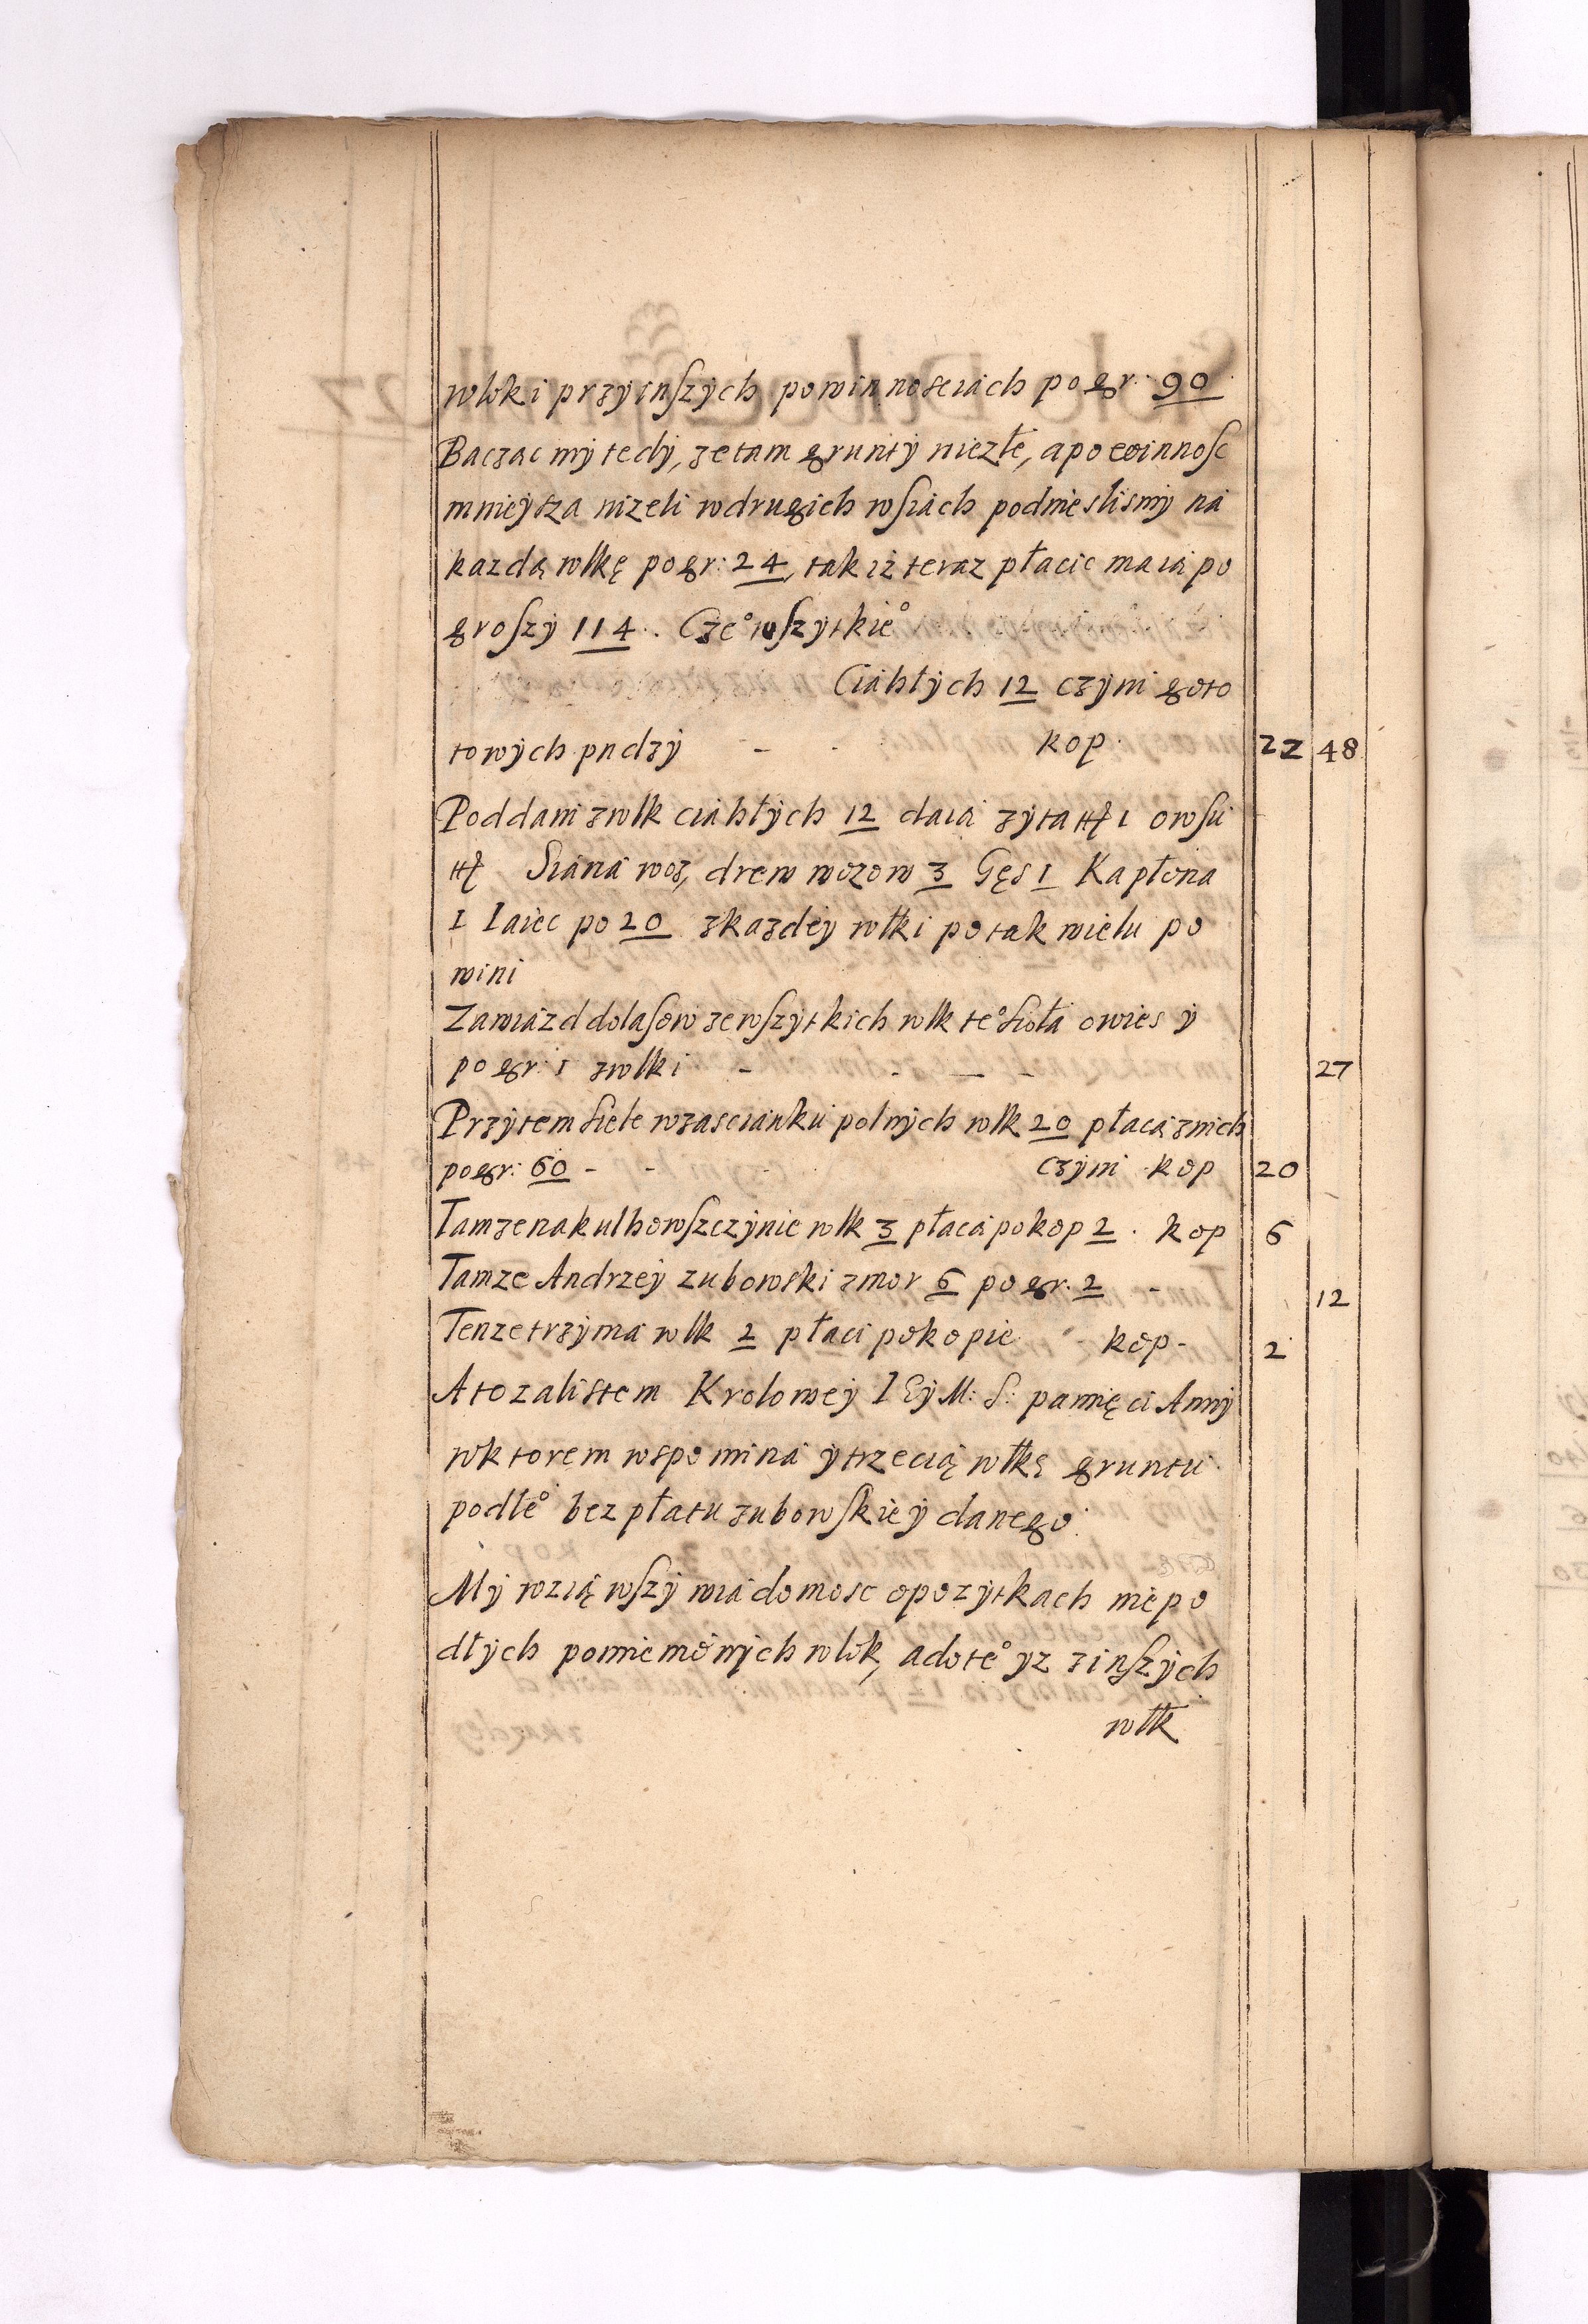 wloki przyinſzych powinnosciach po gr: 90
Bacząc my tedy, ze tam grunty niezłe, a powinnosc
mnieysza nizeli w drugich wſiach podnieslismy na
kazdą wlkę po gr: 24, tak iż teraz płacic maią po
groſzy 114. Czeº wſzytkieº
Ciahłych 12 czyni goto
towych pndzy - - kop. 22 48
Poddani z wlk ciahłych 12 daią zyta 1 owsu
Siana woz, drew wozow 3 Gęs 1 Kapłona
1 Iaiec po 20 z kazdey włki po tak wielu po
wini
Za wiazd do lasow ze wſzytkich wlk teº sioła owies y
po gr: 1 z wlki - - - - 27
Przy tem siele w zascianku polnych wlk 20 płacą z nich
po gr: 60 - - czyni kop 20
Tamze na kulhowſzczynie wlk 3 płacą po kop 2. kop 6
Tamze Andrzey zubowski z mor 6 po gr. 2 - 12
Tenze trzyma wlk 2 płaci po kopie - kop - 2
A to za listem Krolowey I Ey M: S: pamięci Anny
w ktorem wspomina y trzecią włkę gruntu
podłeº bez płatu zubowſkiey danego
My wziąwſzy wiadomosc o pozytkach niepo
dłych pomienionych wlok, a do teº yz z inſzych
włk